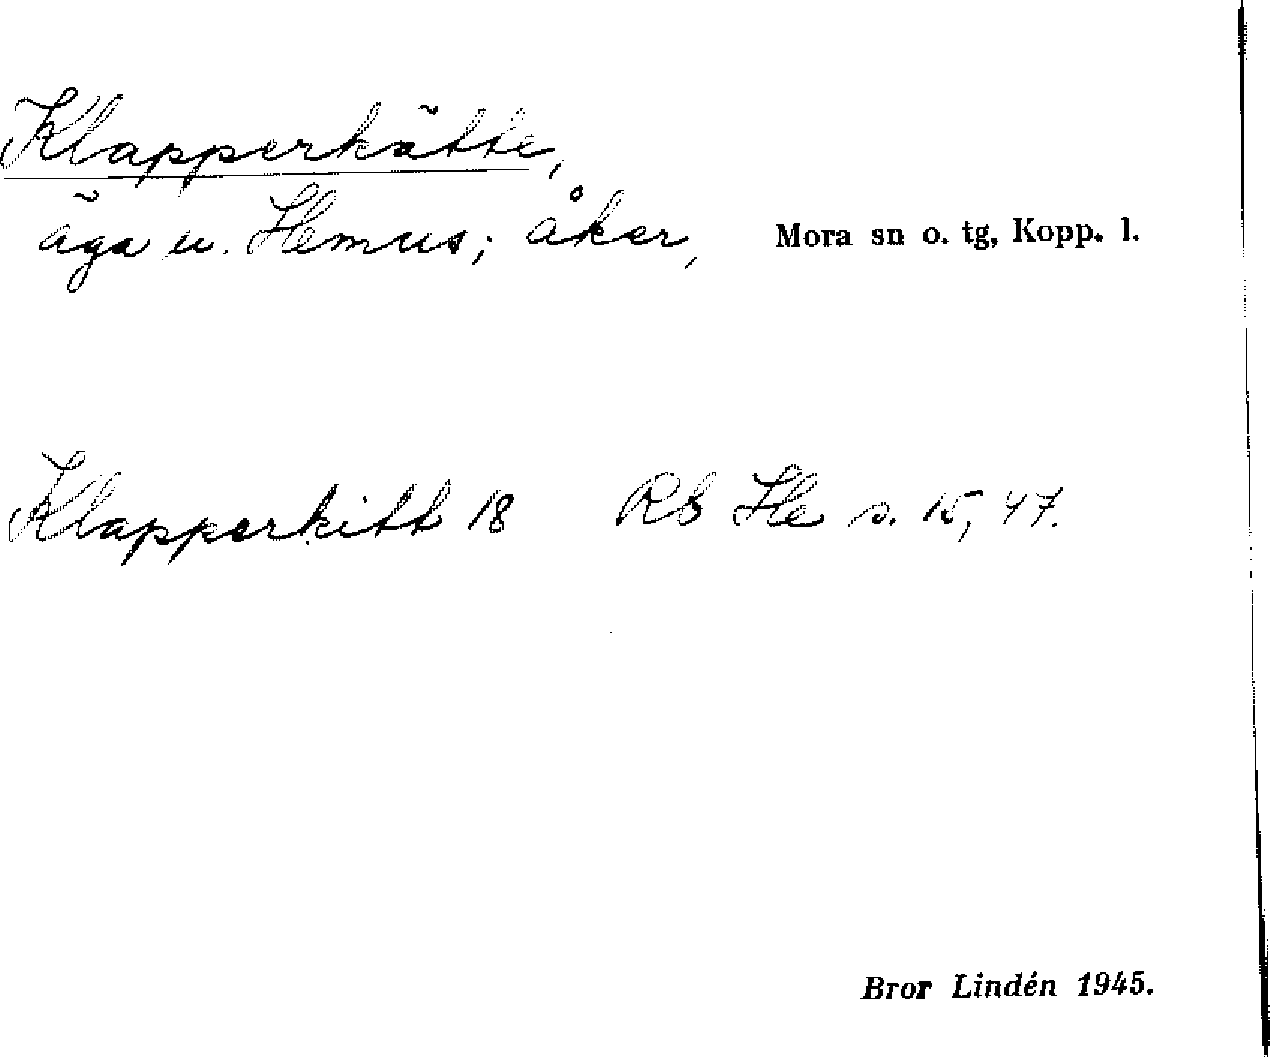 Klapperkätte,
äga u. Hemus; åker, Mora sn o. tg, Kopp. l.
Klapperkitt 18 Rb He s. 15, 47.
Bror Lindén 1945.